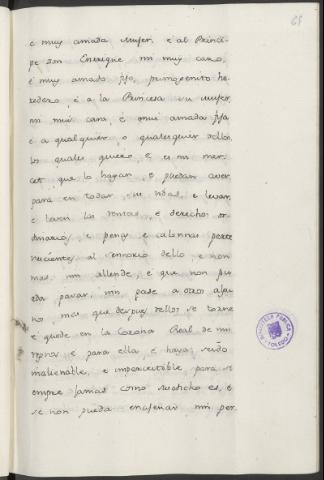 69
e muy amada Muger, e al Princi-
pe Don Enrrique mi muy caro,
e muy amado fijo, primogenito he-
redero, e a la Princesa su muger,
mi mui cara, e mui amada fija
e a qualquier o qualesquier dellos,
los quales quiero, e es mi mer-
cet que lo hayan, e puedan aver
para en todas sus vidas, e levar,
e lleven las rentas, e derechos or-
dinarios, e penas e calonnas perte
necientes al sennorio dello, e non
mas nin allende, e que non pu
eda pasar, nin pase a otro algu
no, mas que despues dellos se torne
e quede en la Corona Real de mis
regnos e para ella, e haya seido
inalienable, e imprescritible para si
empre jamas como susodicho es, e
se non pueda enagenar nin per
BIBLIOTECA PUBLICA
TOLEDO